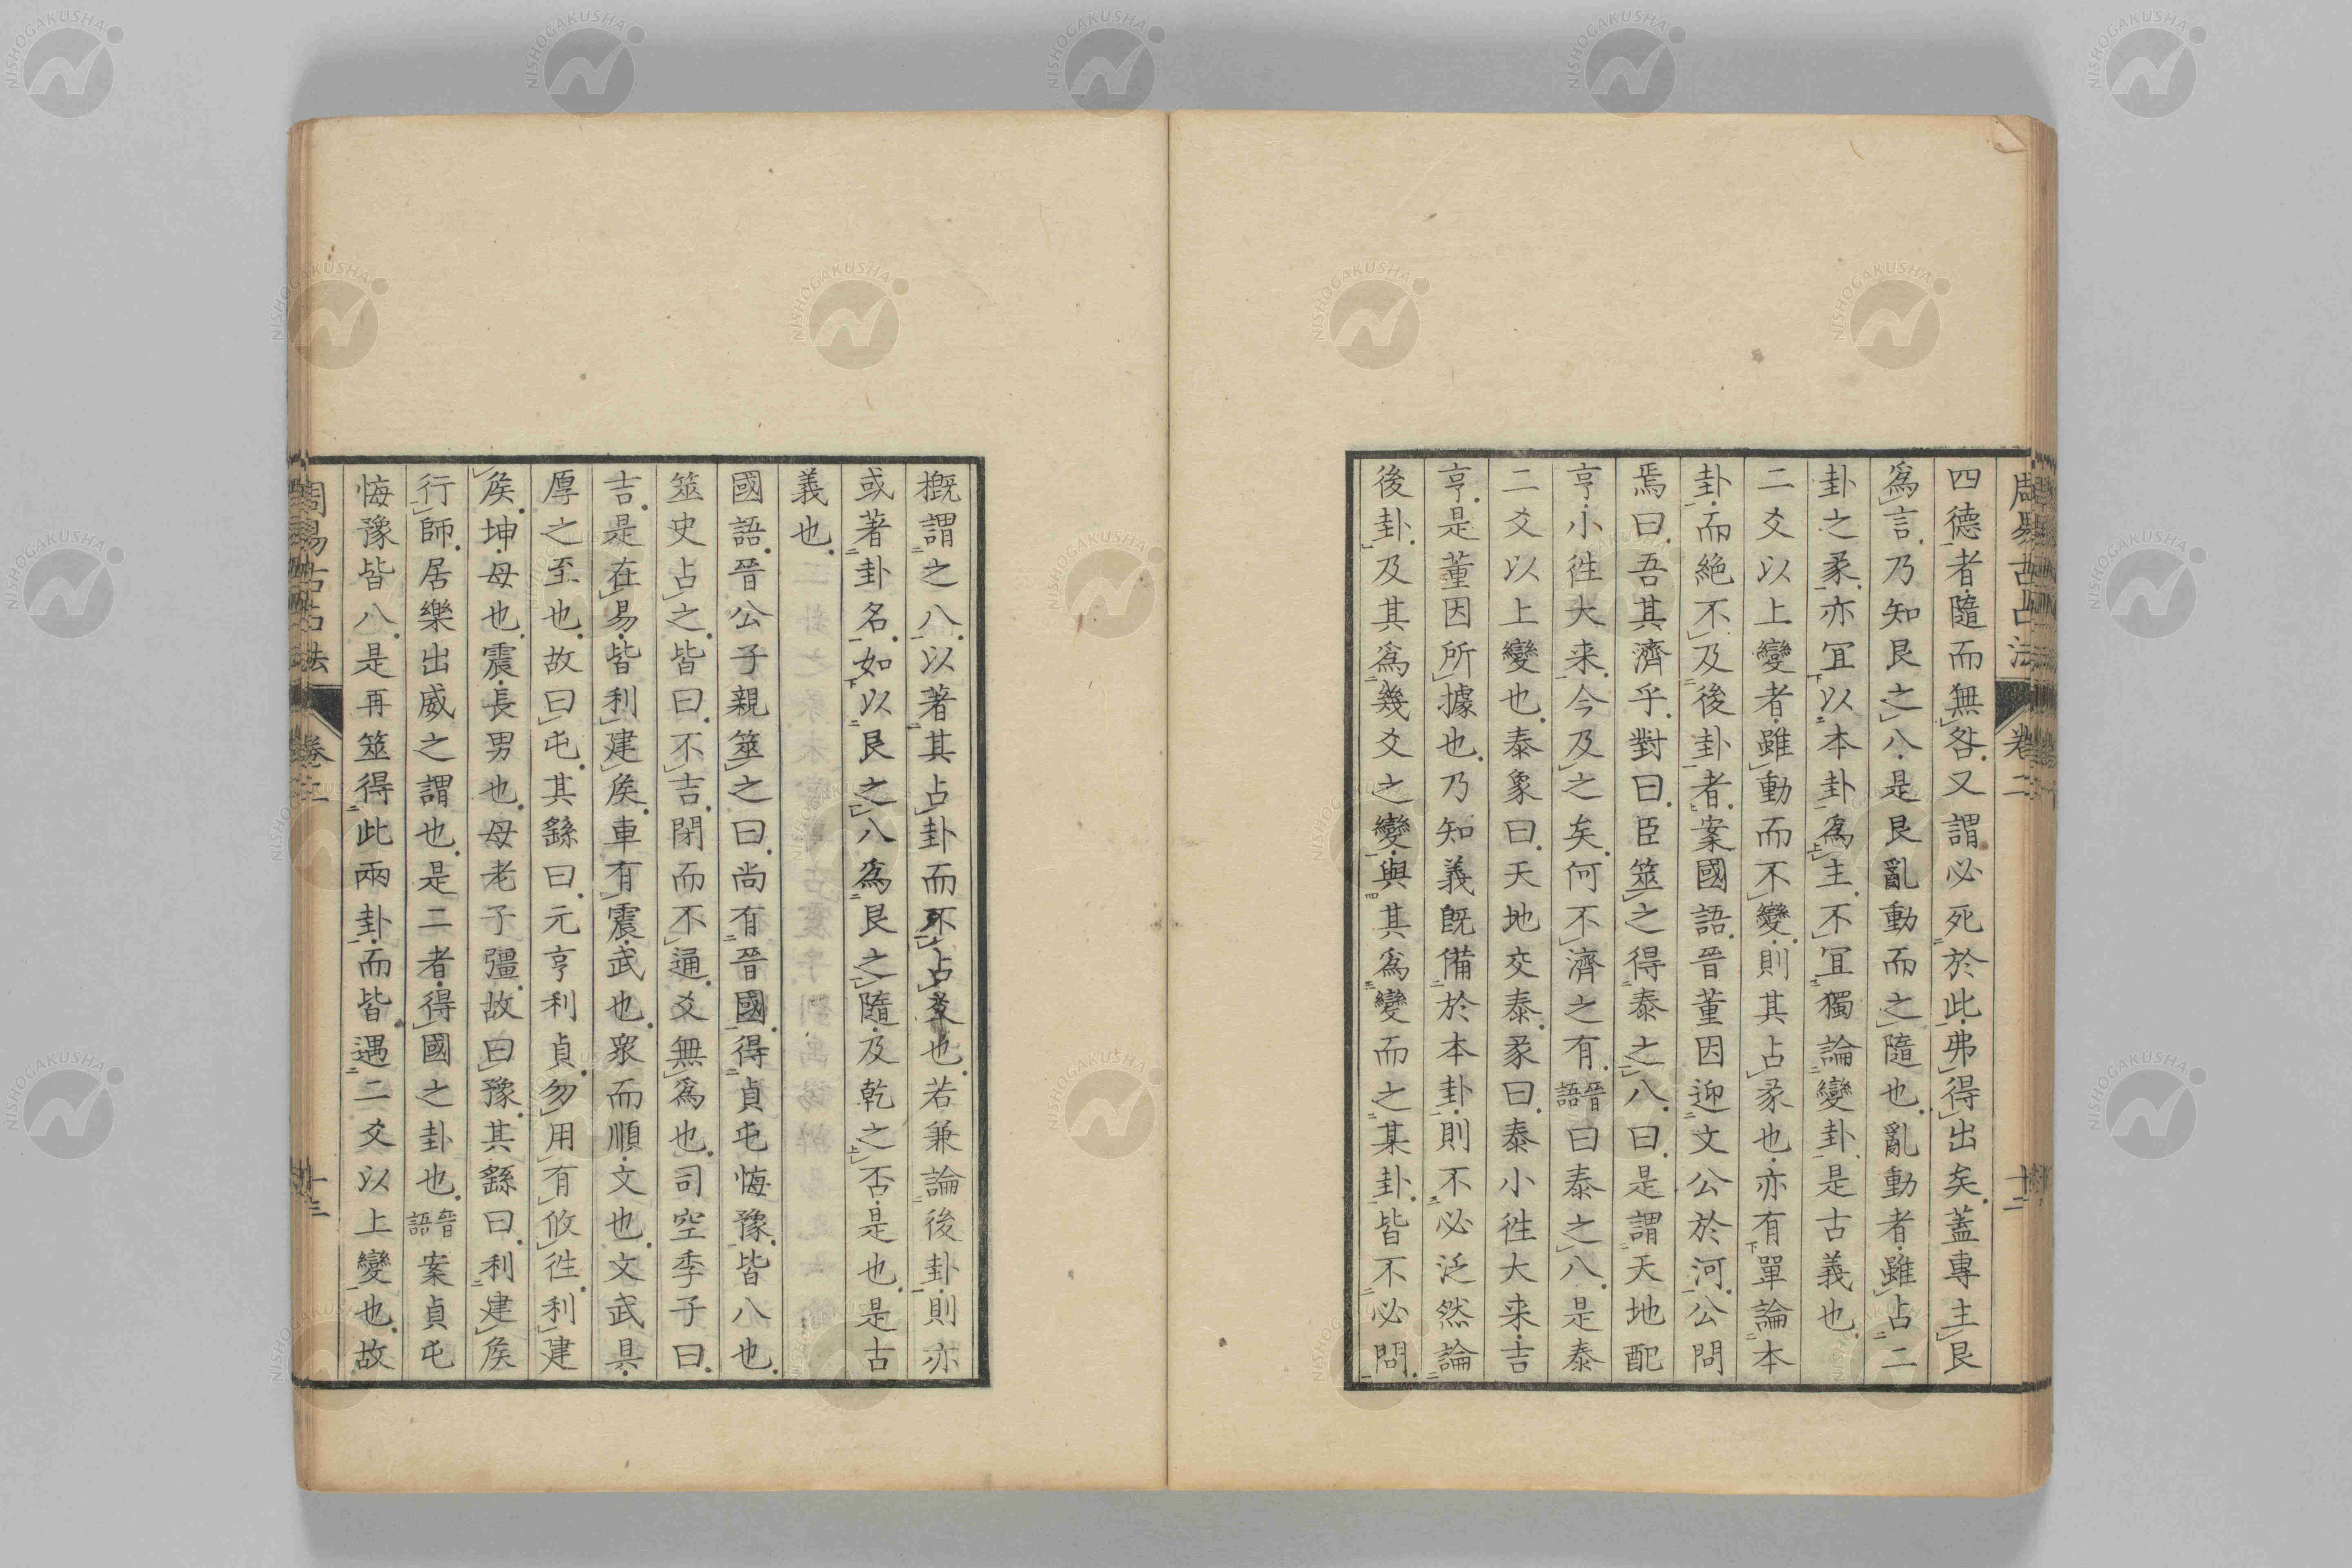 周易古占法 卷二 十二
四德者隨而無咎又謂必死於此弗得出矣蓋專主艮
爲言乃知艮之八是艮亂動而之隨也亂動者雖占二
卦之彖亦冝以本卦爲主不冝獨論變卦是古義也
二爻以上變者雖動而不變則其占彖也亦有單論本
卦而絶不及後卦者案國語晉董因迎文公於河公問
焉曰吾其濟乎對曰臣筮之得泰之八曰是謂天地配
亨小徃大来今及之矣何不濟之有晉語曰泰之八是泰
二爻以上變也泰象曰天地交泰彖曰泰小徃大来吉
亨是董因所據也乃知義既備於本卦則不必泛然論
後卦及其爲幾爻之變與其爲變而之某卦皆不必問
概謂之八以著其占卦而不占爻也若兼論後卦則亦
或著卦名如以艮之八爲艮之隨及乾之否是也是古
義也
國語晉公子親筮之曰尚有晉國得貞屯悔豫皆八也
筮史占之皆曰不吉閉而不通爻無爲也司空季子曰
吉是在易皆利建矦車有震武也衆而順文也文武具
厚之至也故曰屯其繇曰元亨利貞勿用有攸徃利建
矦坤母也震長男也母老子彊故曰豫其繇曰利建矦
行師居樂出威之謂也是二者得國之卦也晉語案貞屯
悔豫皆八是再筮得此兩卦而皆遇二爻以上變也故
周易古占法 卷二 十三